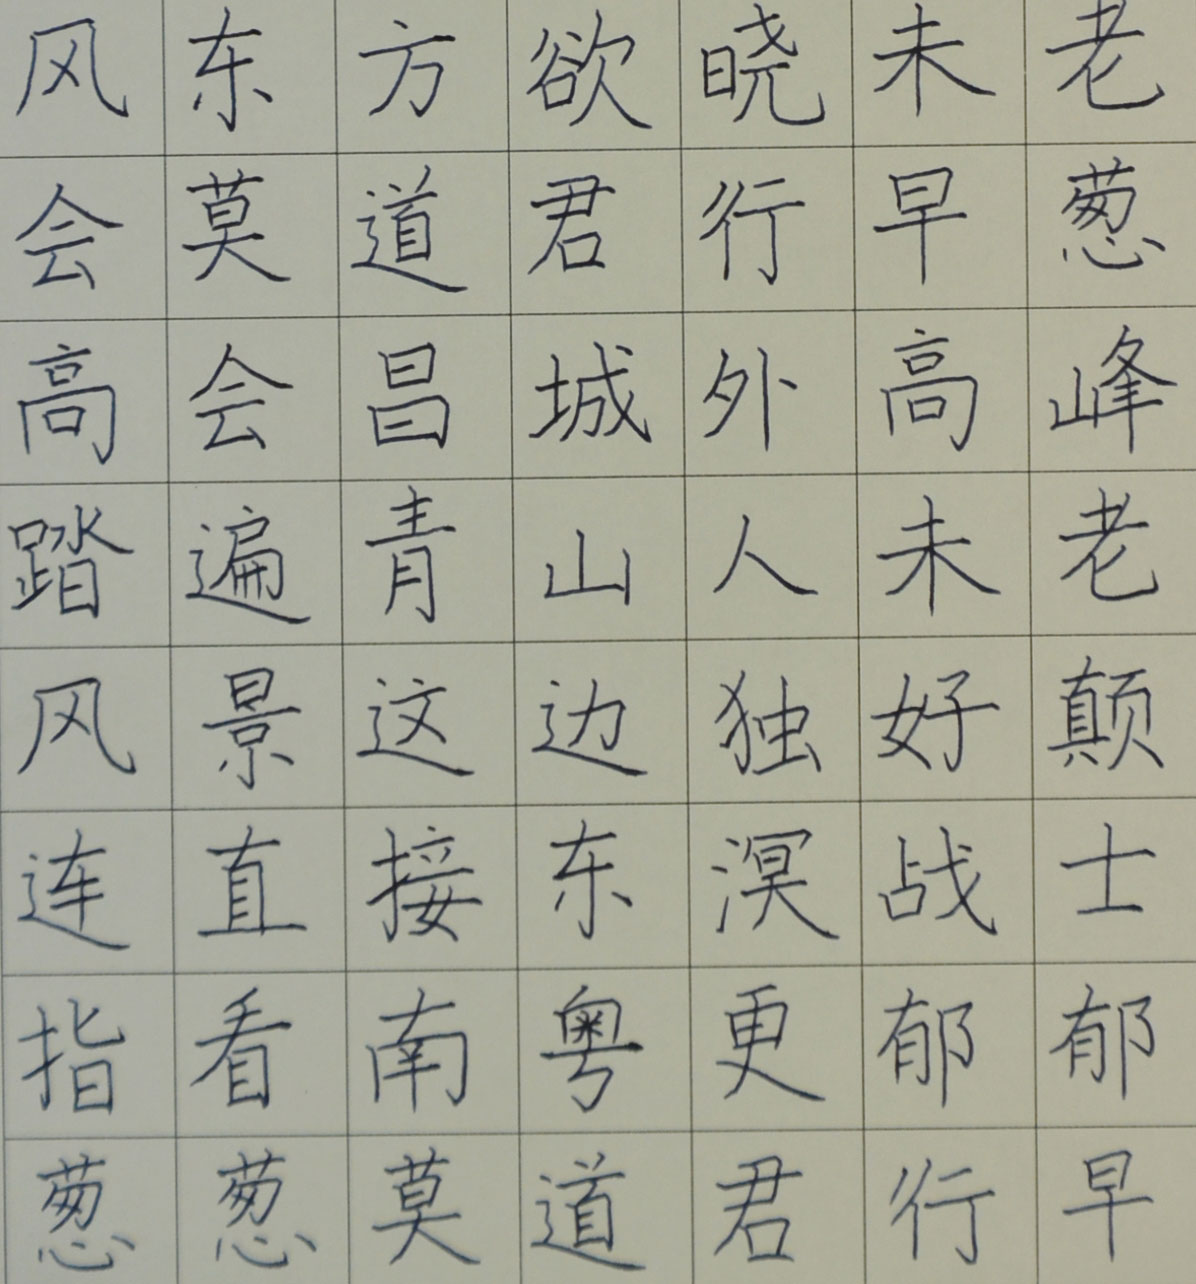 风东方欲晓未老
会莫道君行早葱
高会昌城外高峰
踏遍青山人未老
风景这边独好颠
连直接东溟战士
指看南粤更郁郁
葱葱莫道君行早